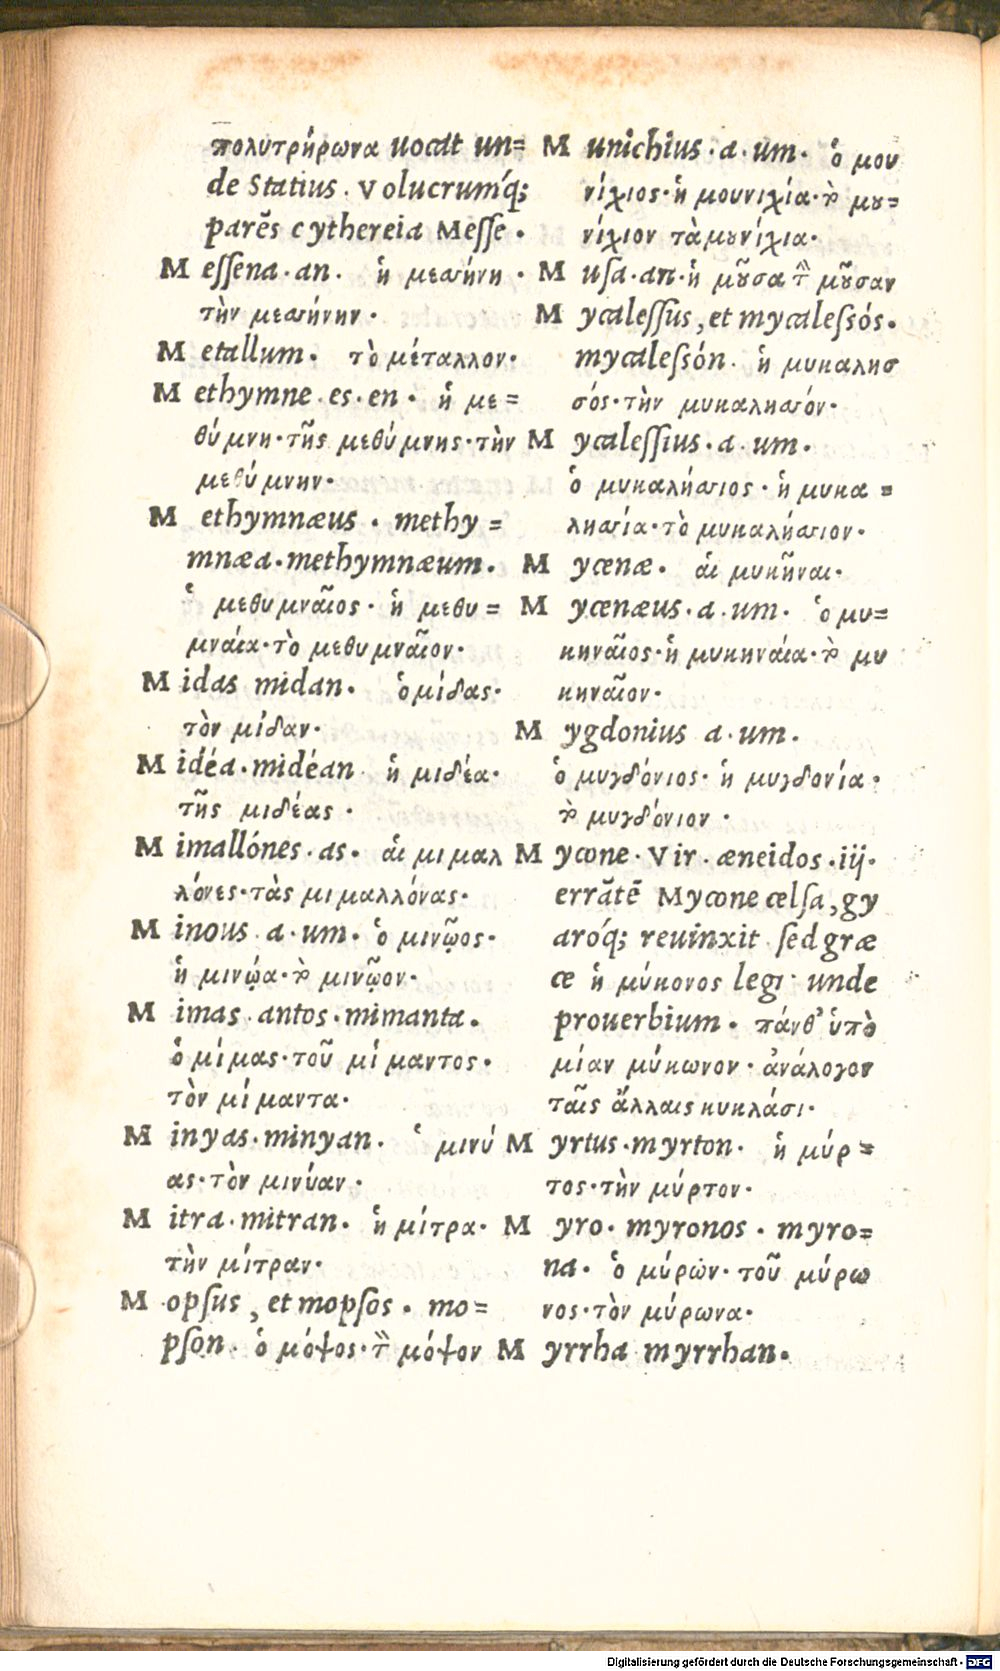 πολυτρήρωνα uocat un=
de Statius. Volucrumq́;
parēs cythereia Messe.
Messena.an. ἡ μεσσήνη.
τὴν μεσσήνην.
Metallum. τὸ μέταλλον.
Methymne.es.en. ἡ με=
θύμνη.τῆς μεθύμνης.τὴν
μεθύμνην.
Methymnæus. methy=
mnæa.methymnæum.
ὁ μεθυμναῖος. ἡ μεθυ=
μναία.τὸ μεθυμναῖον.
Midas midan. ὁ μίδας.
τὸν μίδαν.
Midéa.midéan ἡ μιδέα.
τῆς μιδέας.
Mimallónes.as. αἱ μιμαλ
λόνες.τὰς μιμαλλόνας.
Minous.a.um. ὁ μινῷος.
ἡ μινῴα.ϗ μινῷον.
Mimas.antos.mimanta.
ὁ μίμας.τοῦ μίμαντος.
τὸν μίμαντα.
Minyas.minyan. ὁ μινύ
ας.τὸν μινύαν.
Mitra.mitran. ἡ μίτρα.
τὴν μίτραν.
Mopsus, et mopsos. mo=
pson. ὁ μόψος.τὸν μόψον
Munichius.a.um. ὁ μου
νίχιος.ἡ μουνιχία.ϗ μου=
νίχιον τὰ μουνίχια.
Musa.an.ἡ μοῦσα τὴν μοῦσαν
Mycalessus, et mycalessós.
mycalessón. ἡ μυκαλησ
σός.τὴν μυκαλησσόν.
Mycalessius.a.um.
ὁ μυκαλήσσιος.ἡ μυκα=
λησσία.τὸ μυκαλήσσιον.
Mycenæ. αἱ μυκῆναι.
Mycenæus.a.um. ὁ μυ=
κηναῖος.ἡ μυκηναία.ϗ μυ
κηναῖον.
Mygdonius a.um.
ὁ μυγδόνιος. ἡ μυγδονία.
ϗ μυγδόνιον.
Mycone.Vir.æneidos.iij.
errātē Mycone celsa, gy
aroq́; reuinxit.sed græ
ce ἡ μύκονος legi. unde
prouerbium. πάνθ' ὑπὸ
μίαν μύκωνον. ἀνάλογον
ταῖς ἄλλαις κυκλάσι.
Myrtus.myrton. ἡ μύρ=
τος.τὴν μύρτον.
Myro.myronos.myro=
na. ὁ μύρων.τοῦ μύρω
νος.τὸν μύρωνα.
Myrrha myrrhan.
Digitalisierung gefördert durch die Deutsche Forschungsgemeinschaft - DFG